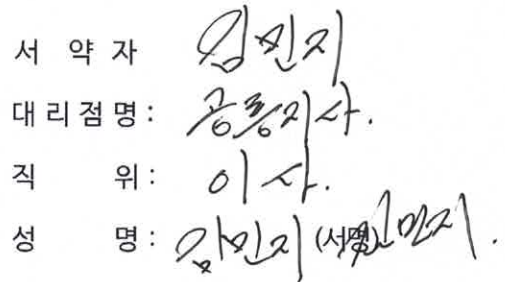 서 약 자 김민지
대리점명: 공릉지사.
직 위: 이사.
성 명: 김민지 (서명) 김민지.